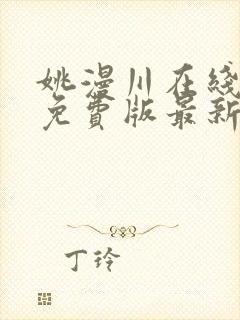 姚漫川在线
免费版最新
丁玲